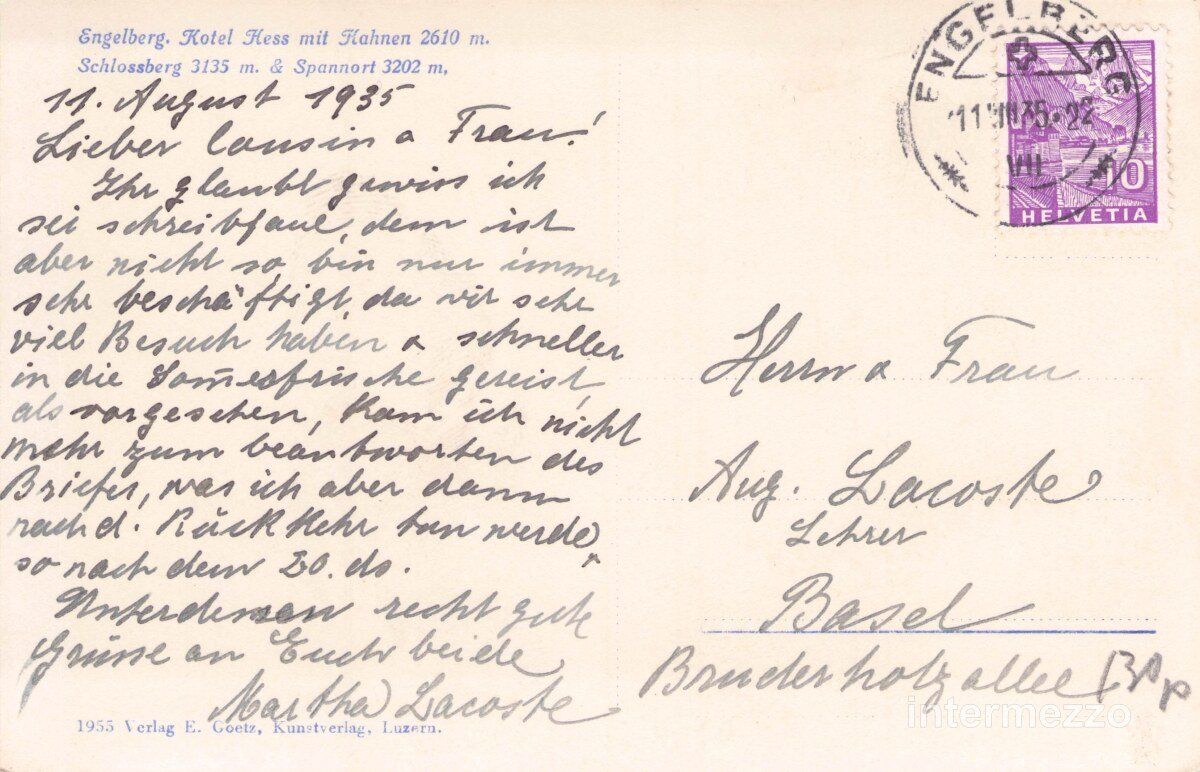 Engelberg. Hotel Hess mit Hahnen 2610 m.
Schlossberg 3135 m. & Spannort 3202 m,
11. August 1935
Lieber Cousin & Frau!
Ihr glaubt gewiss ich
sei schreibfaul, dem ist
aber nicht so, bin nur immer
sehr beschäftigt, da wir sehr
viel Besuch haben & schneller
in die Som̅erfrische gereist,
als vorgesehen, kam ich nicht
mehr zum beantworten des
Briefes, was ich aber dann
nach d. Rückkehr tun werde,
so nach dem 20. ds.
Unterdessen recht gute
Grüsse an Euch beide
Martha Lacoste
1955 Verlag E. Goetz, Kunstverlag, Luzern.
ENGELBERG
11 VIII 35-22
VII
10
HELVETIA
Herrn & Frau
Aug. Lacoste
Lehrer
Basel
Bruderholzallee
intermezzo